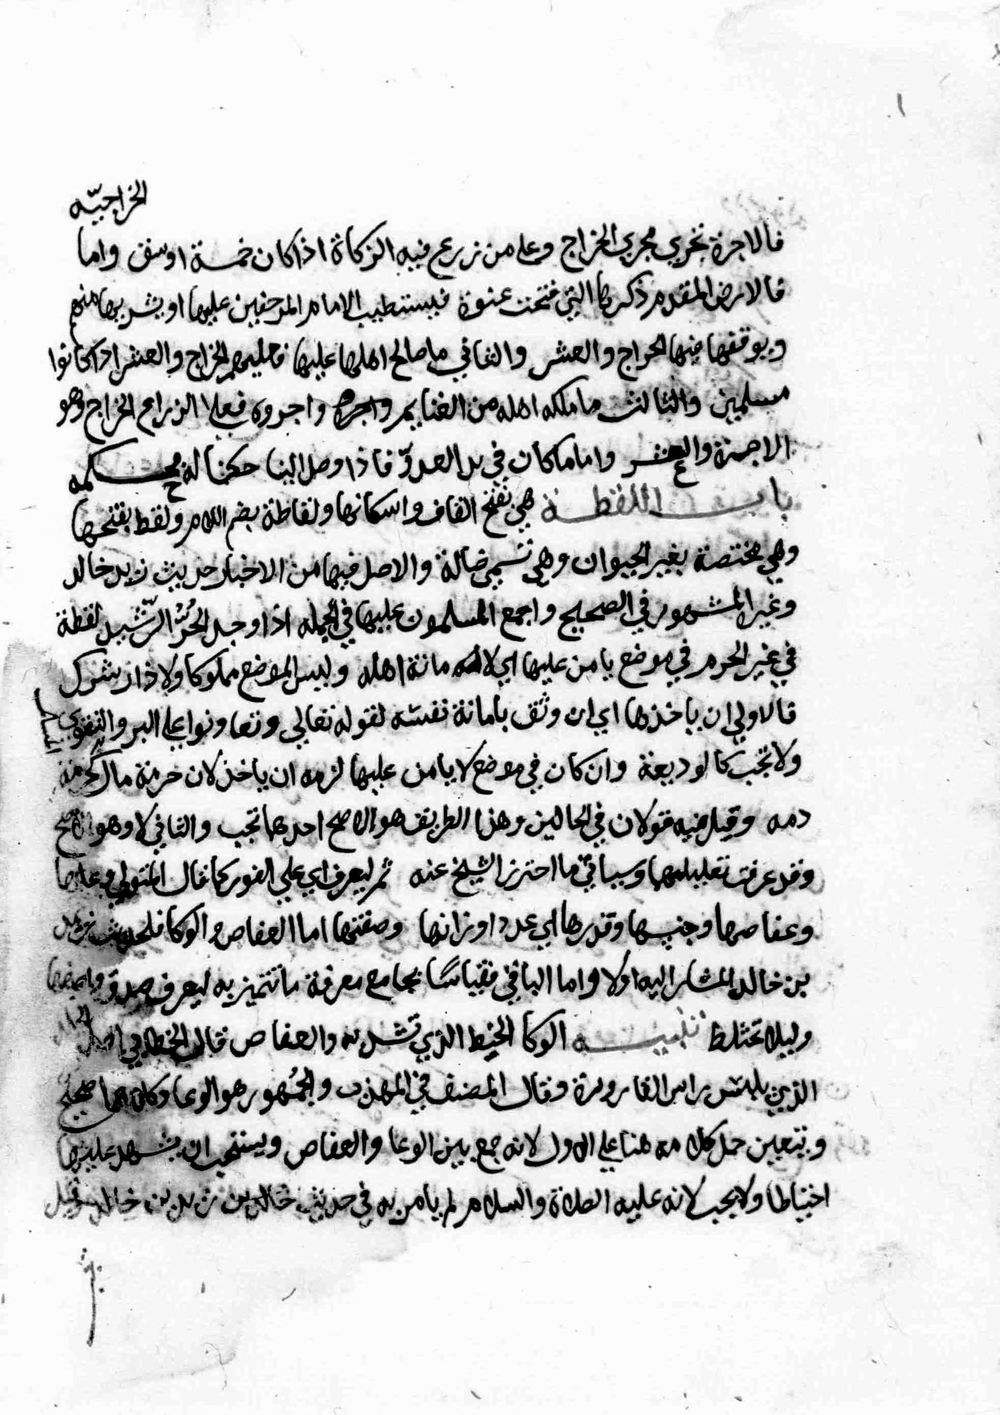 الخراجيّه
فالاجرة تجري مجري الخراج وعلي من زرع فيه الزكاة اذا كان خمسة اوسق واما
فالارض المقدم ذكرها التي فتحت عنوة فيستطيب الامام المرجفين عليها او يشريها منهم
ويوقفها ففيها الخراج والعشر والثاني ما صالح اهلها عليها فعليهم الخراج والعشر اذا كانوا
مسلمين والثالث ما ملكه اهله من الغنايم واجروه فعلا الزراع الخراج وهو
الاجرة والعشر واما ما كان في يد العدوّ فاذا وصل الينا حكمنا له بحكمه
باب اللقطة هي بفتح القاف واسكانها ولقاطة بضم اللام ولقط بفتحها
وهي مختصة بغير الحيوان وهي تسمي ضالة والاصل فيها من الاخبار حديث زيد خالد
وغير المشهور في الصحيح واجمع المسلمون عليها في الجمله اذا وجد الحُرّ الرّشيد لقطة
في غير الحرم في موضع يامن عليها اي لامانة اهله وليس الموضع مملوكا ولا دار شرك
فالاولي ان ياخذها اي ان وثق بامانة نفسه لقوله تعالي وتعاونوا علي البر والتقوي
ولا تجب كالوديعة وان كان في موضع لا يامن عليها لزمه ان ياخذ لان حرمة ماله كحرمة
دمه وقيل فيه قولان في الحالين وهذا الطريق هو الاصح احدهما تجب والثاني لا وهو الاصح
وقد عرفت تعليليهما وسياتي ما احترز الشيخ عنه ثم ليعرف اي علي الفور كما قال المتولي وعاها
وعفاصها وجنسها وقدرها اي عددا او زانها وصفتها اما العفاص والوكا فلحديث زيد
بن خالد المشار اليه اولا واما الباقي فقياسًا بجامع معرفة ما تتميز به ليعرف صدق واصفها
وليلا تختلط تنبيه الوكا الخيط الذي تشد به والعفاص قال الخطابي
الذي يلبس راس القارورة وقال المصنف في المهذب والجمهور هو الوعا وكلاهما صحيح
ويتعين حمل كلامه هنا علي الاول لانه جمع بين الوعا والعفاص ويستحب ان يشهد عليها
احتياطا ولا يجب لانه عليه الصلاة والسلام لم يامر به في حديث خالد بن زيد بن خالد وقيل